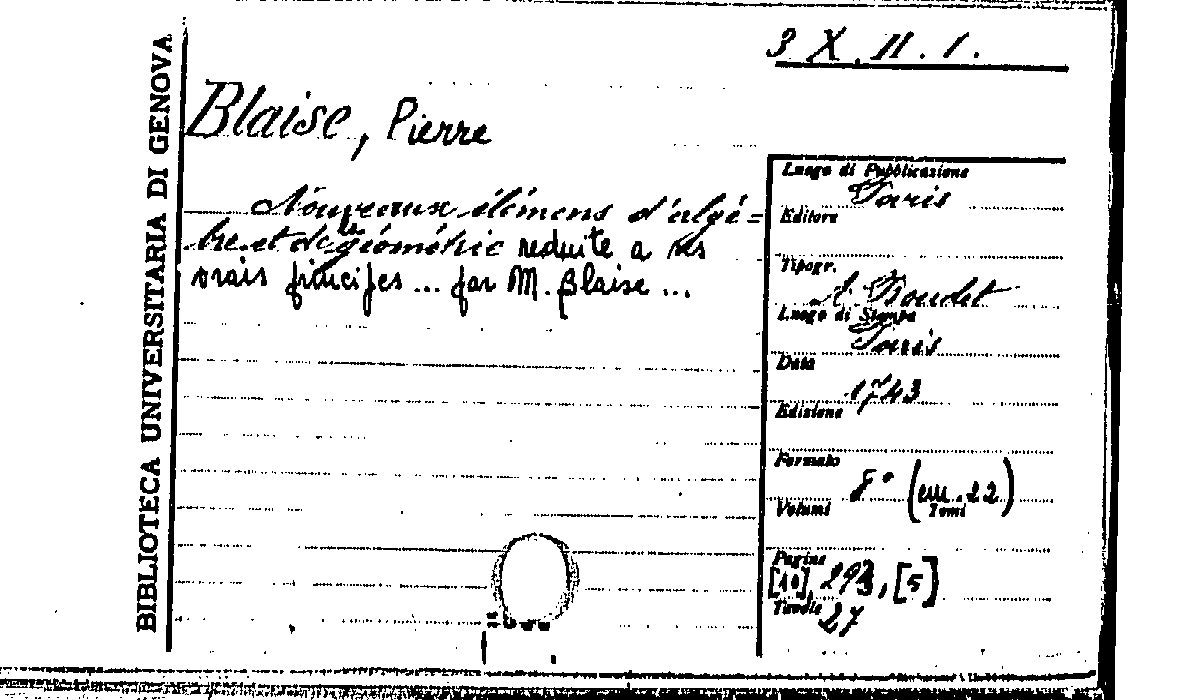 3 X. II. 1.
BIBLIOTECA UNIVERSITARIA DI GENOVA
Blaise, Pierre
Nouveaux élémens d'algé=
bre et de la géométrie reduite a ses
vrais principes ... par M. Blaise ...
Luogo di Pubblicazione
Paris
Editore
Tipogr.
A. Boudet
Luogo di Stampa
Paris
Data
1743
Edizione
Formato
8° (cm. 22)
Volumi
Tomi
Pagine
[10], 293, [5]
Tavole
27